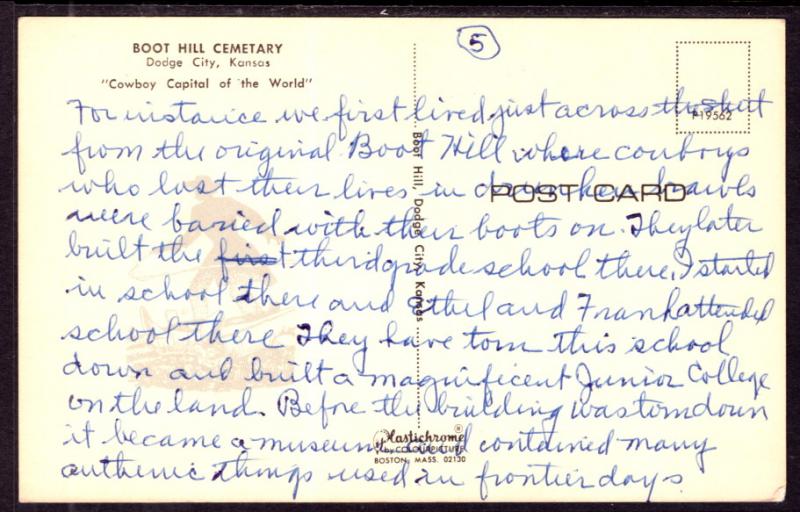 BOOT HILL CEMETARY
Dodge City, Kansas
"Cowboy Capital of the World"
5
P19562
POST CARD
Boot Hill, Dodge City, Kansas
For instance we first lived just across the street
from the original Boot Hill where cowboys
who lost their lives in drunken brawls
were buried with their boots on. They later
built the first third grade school there. I started
in school there and Ethel and Frank attended
school there They have torn this school
down and built a magnificent Junior College
on the land. Before the building was torn down
it became a museum and contained many
authenic things used in frontier days
Plastichrome®
by COLOURPICTURE
BOSTON, MASS. 02130